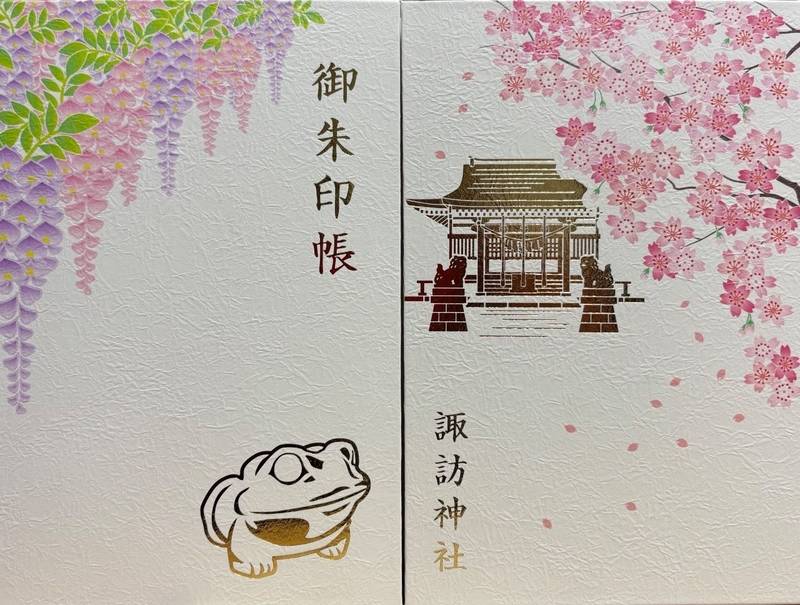 御朱印帳
諏訪神社